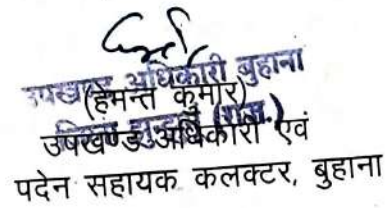 उपखण्ड अधिकारी बुहाना
(हेमन्त कुमार)
जिला झुन्झुनूं (राज.)
उपखण्ड अधिकारी एवं
पदेन सहायक कलक्टर, बुहाना